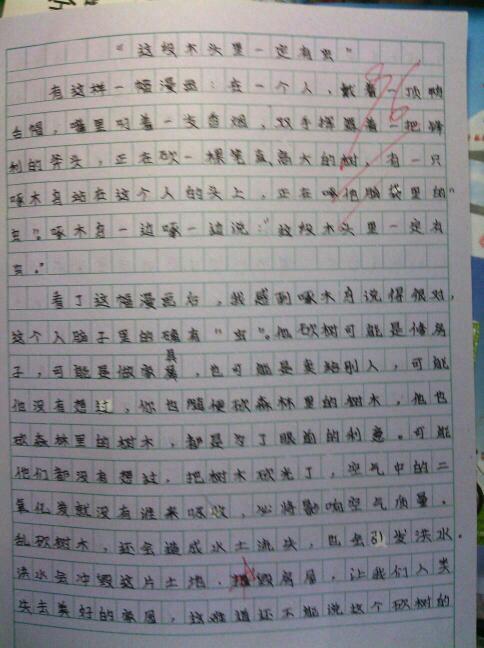 “这段木头里一定有虫”
有这样一幅漫画：在一个人，戴着一顶鸭
舌帽，嘴里叼着一支香烟，双手挥着一把锋
利的斧头，正在砍一棵笔直高大的树，有一只
啄木鸟站在这个人的头上，正在啄他脑袋里的“
虫”。啄木鸟一边啄一边说：“这段木头里一定有
虫。”
看了这幅漫画后，我感到啄木鸟说得很对，
这个人脑子里的确有“虫”。他砍树可能是修房
子，可能是做家具，也可能是卖给别人，可能
他没有想过，你也随便砍森林里的树木，他也
砍森林里的树木，都是为了眼前的利息。可能
他们都没有想过，把树木砍光了，空气中的二
氧化炭就没有谁来吸收，必将影响空气质量，
乱砍树木，还会造成水土流失，也会引发洪水。
洪水会冲毁这片土地，毁房屋，让我们人类
失去美好的家园，这难道还不能说这个砍树的